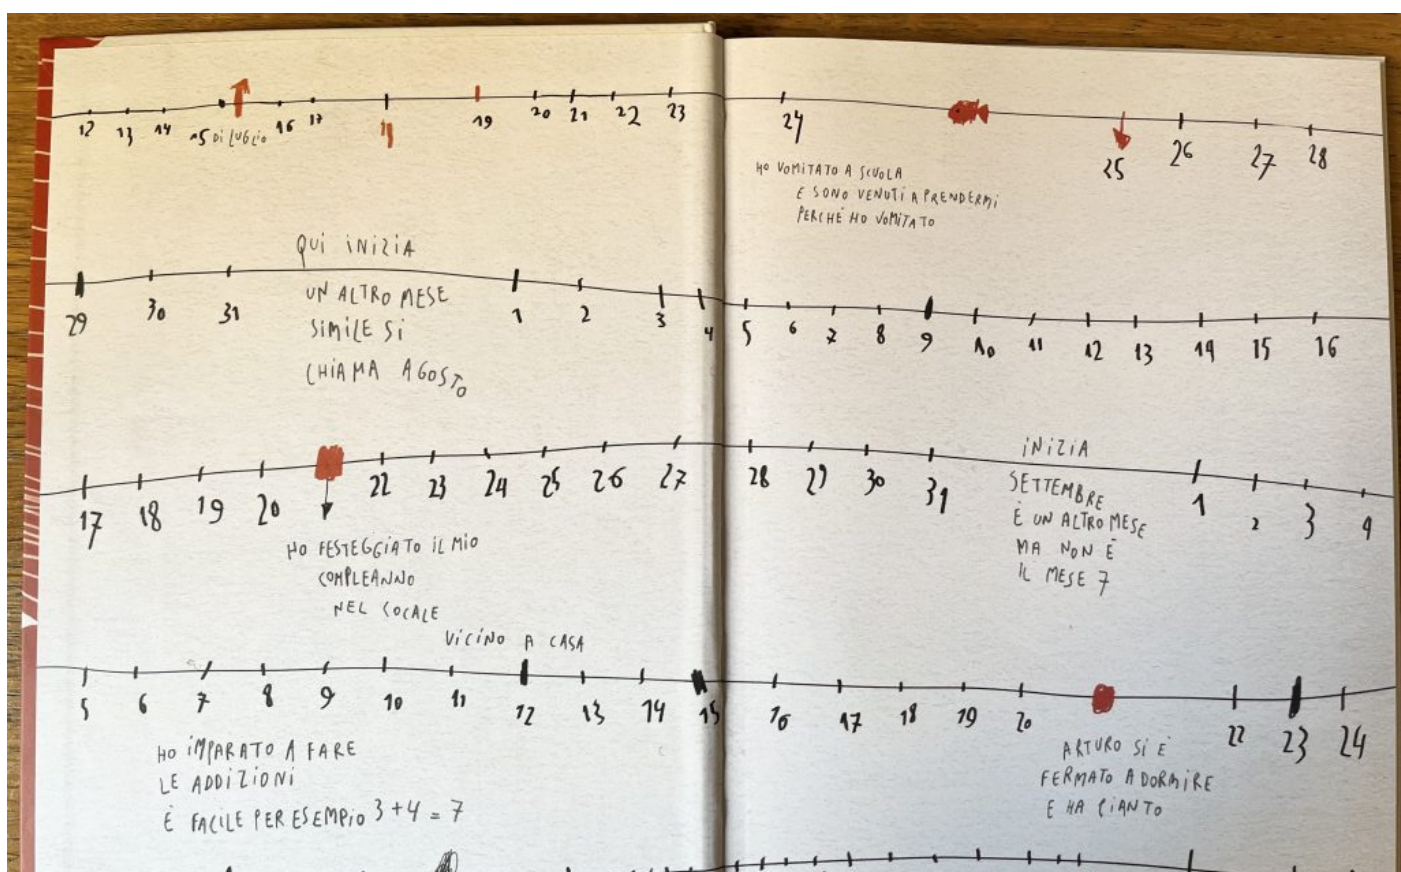 12 13 14 15 DI LUGLIO 16 17 18 19 20 21 22 23 24 25 26 27 28
HO VOMITATO A SCUOLA
E SONO VENUTI A PRENDERMI
PERCHÉ HO VOMITATO
QUI INIZIA
UN ALTRO MESE
SIMILE SI
CHIAMA AGOSTO
29 30 31 1 2 3 4 5 6 7 8 9 10 11 12 13 14 15 16
17 18 19 20 22 23 24 25 26 27 28 29 30 31 1 2 3 4
HO FESTEGGIATO IL MIO
COMPLEANNO
NEL LOCALE
VICINO A CASA
INIZIA
SETTEMBRE
È UN ALTRO MESE
MA NON È
IL MESE 7
5 6 7 8 9 10 11 12 13 14 15 16 17 18 19 20 22 23 24
HO IMPARATO A FARE
LE ADDIZIONI
È FACILE PER ESEMPIO 3+4=7
ARTURO SI È
FERMATO A DORMIRE
E HA PIANTO